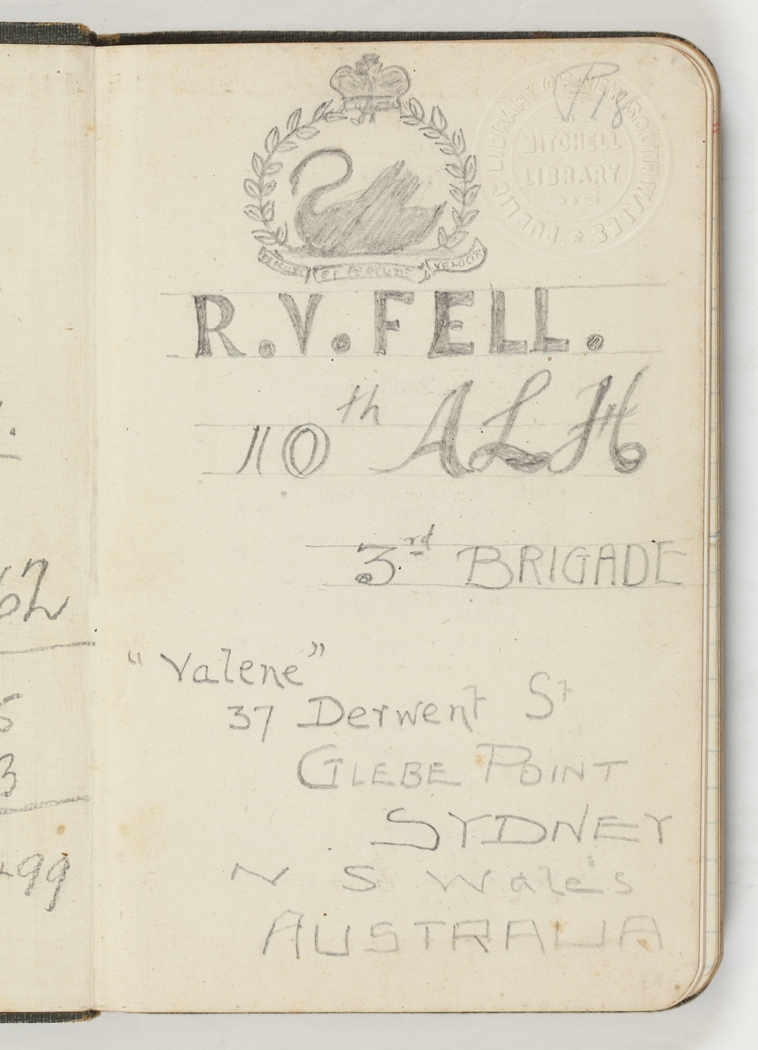 PUBLIC LIBRARY OF NEW SOUTH WALES
MITCHELL
LIBRARY
VELOCIA
R.V. FELL.
10th ALH
3rd BRIGADE
"Valene"
37 Derwent St
GLEBE POINT
SYDNEY
N S Wales
AUSTRALIA
62
5
3
99